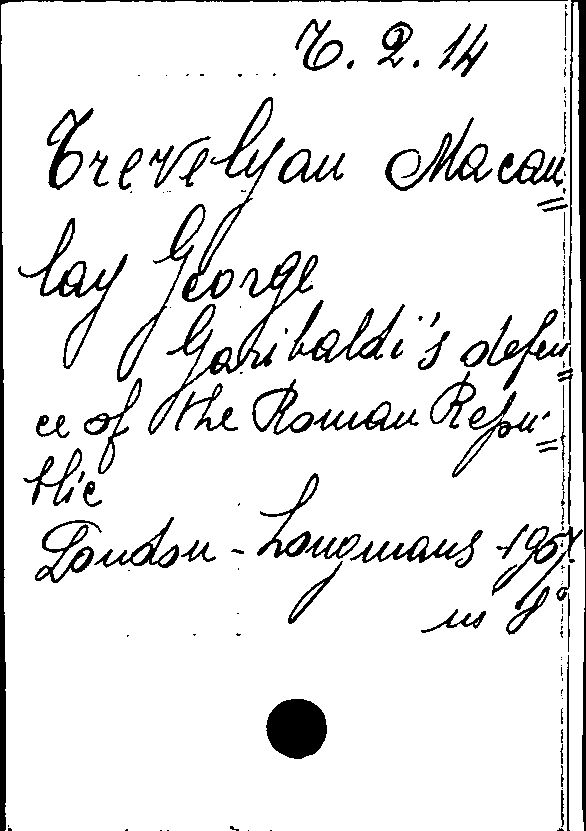 T. 2. 14
Trevelyan Macau=
lay George
Garibaldi's defen=
ce of the Roman Repu=
blic
London - Longmans 1907.
in 8°